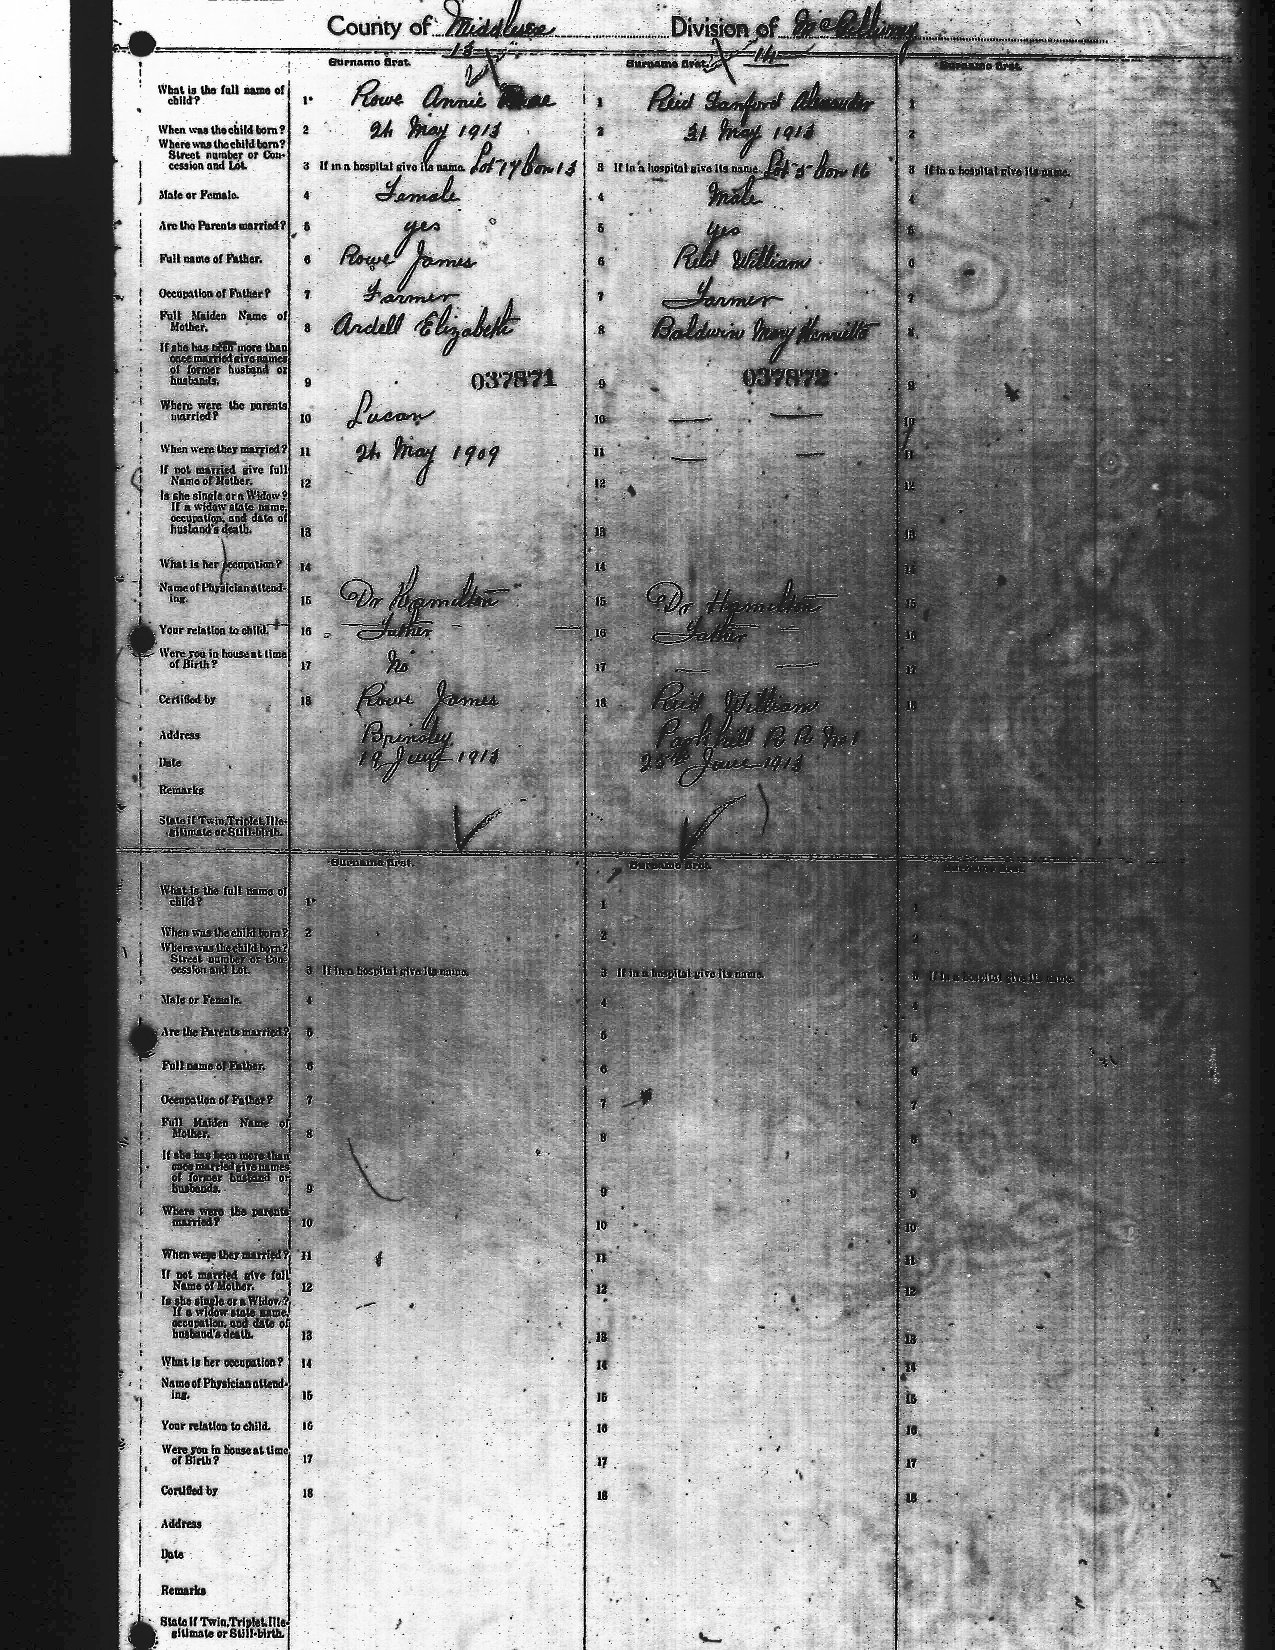 County of Middlesex Division of McGillivray
13 14
Surname first. Surname first. Surname first.
What is the full name of child? 1 Rowe Annie 1 Reid Sanford Alexander 1
When was the child born? 2 24 May 1913 2 31 May 1913 2
Where was the child born? Street number or Concession and Lot. 3 If in a hospital give its name. Lot 14 Con 13 3 If in a hospital give its name. Lot 5 Con 16 3 If in a hospital give its name.
Male or Female. 4 Female 4 Male 4
Are the Parents married? 5 yes 5 yes 5
Full name of Father. 6 Rowe James 6 Reid William 6
Occupation of Father? 7 Farmer 7 Farmer 7
Full Maiden Name of Mother. 8 Ardell Elizabeth 8 Baldwin Mary Henrietta 8
If she has been more than once married give names of former husband or husbands. 9 037871 9 037872 9
Where were the parents married? 10 Lucan 10 — — 10
When were they married? 11 24 May 1909 11 — — 11
If not married give full Name of Mother. 12 12 12
Is she single or a Widow? If a widow state name, occupation, and date of husband's death. 13 13 13
What is her occupation? 14 14 14
Name of Physician attending. 15 Dr Hamilton 15 Dr Hamilton 15
Your relation to child. 16 Father 16 Father 16
Were you in house at time of Birth? 17 No 17 — — 17
Certified by 18 Rowe James 18 Reid William 18
Address Brinsley Parkhill R R No 1
Date 19 June 1913 25th June 1913
Remarks
State if Twin, Triplet, Illegitimate or Still-birth.
Surname first. Surname first. Surname first.
What is the full name of child? 1 1 1
When was the child born? 2 2 2
Where was the child born? Street number or Concession and Lot. 3 If in a hospital give its name. 3 If in a hospital give its name. 3 If in a hospital give its name.
Male or Female. 4 4 4
Are the Parents married? 5 5 5
Full name of Father. 6 6 6
Occupation of Father? 7 7 7
Full Maiden Name of Mother. 8 8 8
If she has been more than once married give names of former husband or husbands. 9 9 9
Where were the parents married? 10 10 10
When were they married? 11 11 11
If not married give full Name of Mother. 12 12 12
Is she single or a Widow? If a widow state name, occupation, and date of husband's death. 13 13 13
What is her occupation? 14 14 14
Name of Physician attending. 15 15 15
Your relation to child. 16 16 16
Were you in house at time of Birth? 17 17 17
Certified by 18 18 18
Address
Date
Remarks
State if Twin, Triplet, Illegitimate or Still-birth.